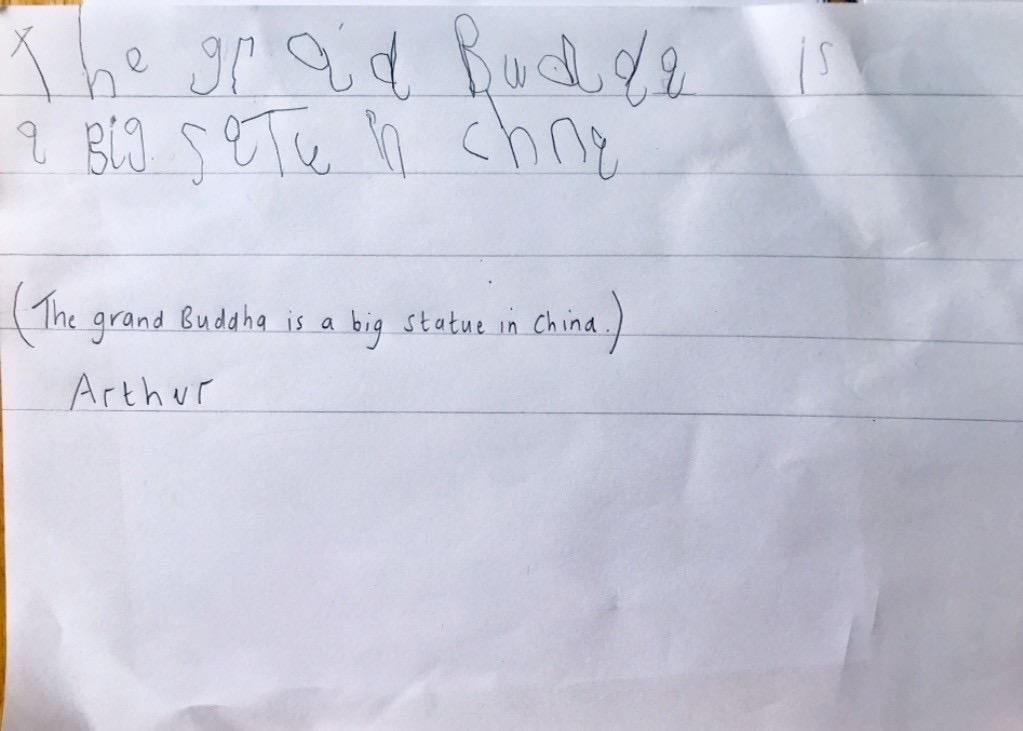 The graid Budda is
a Big satu in chna
(The grand Buddha is a big statue in China.)
Arthur